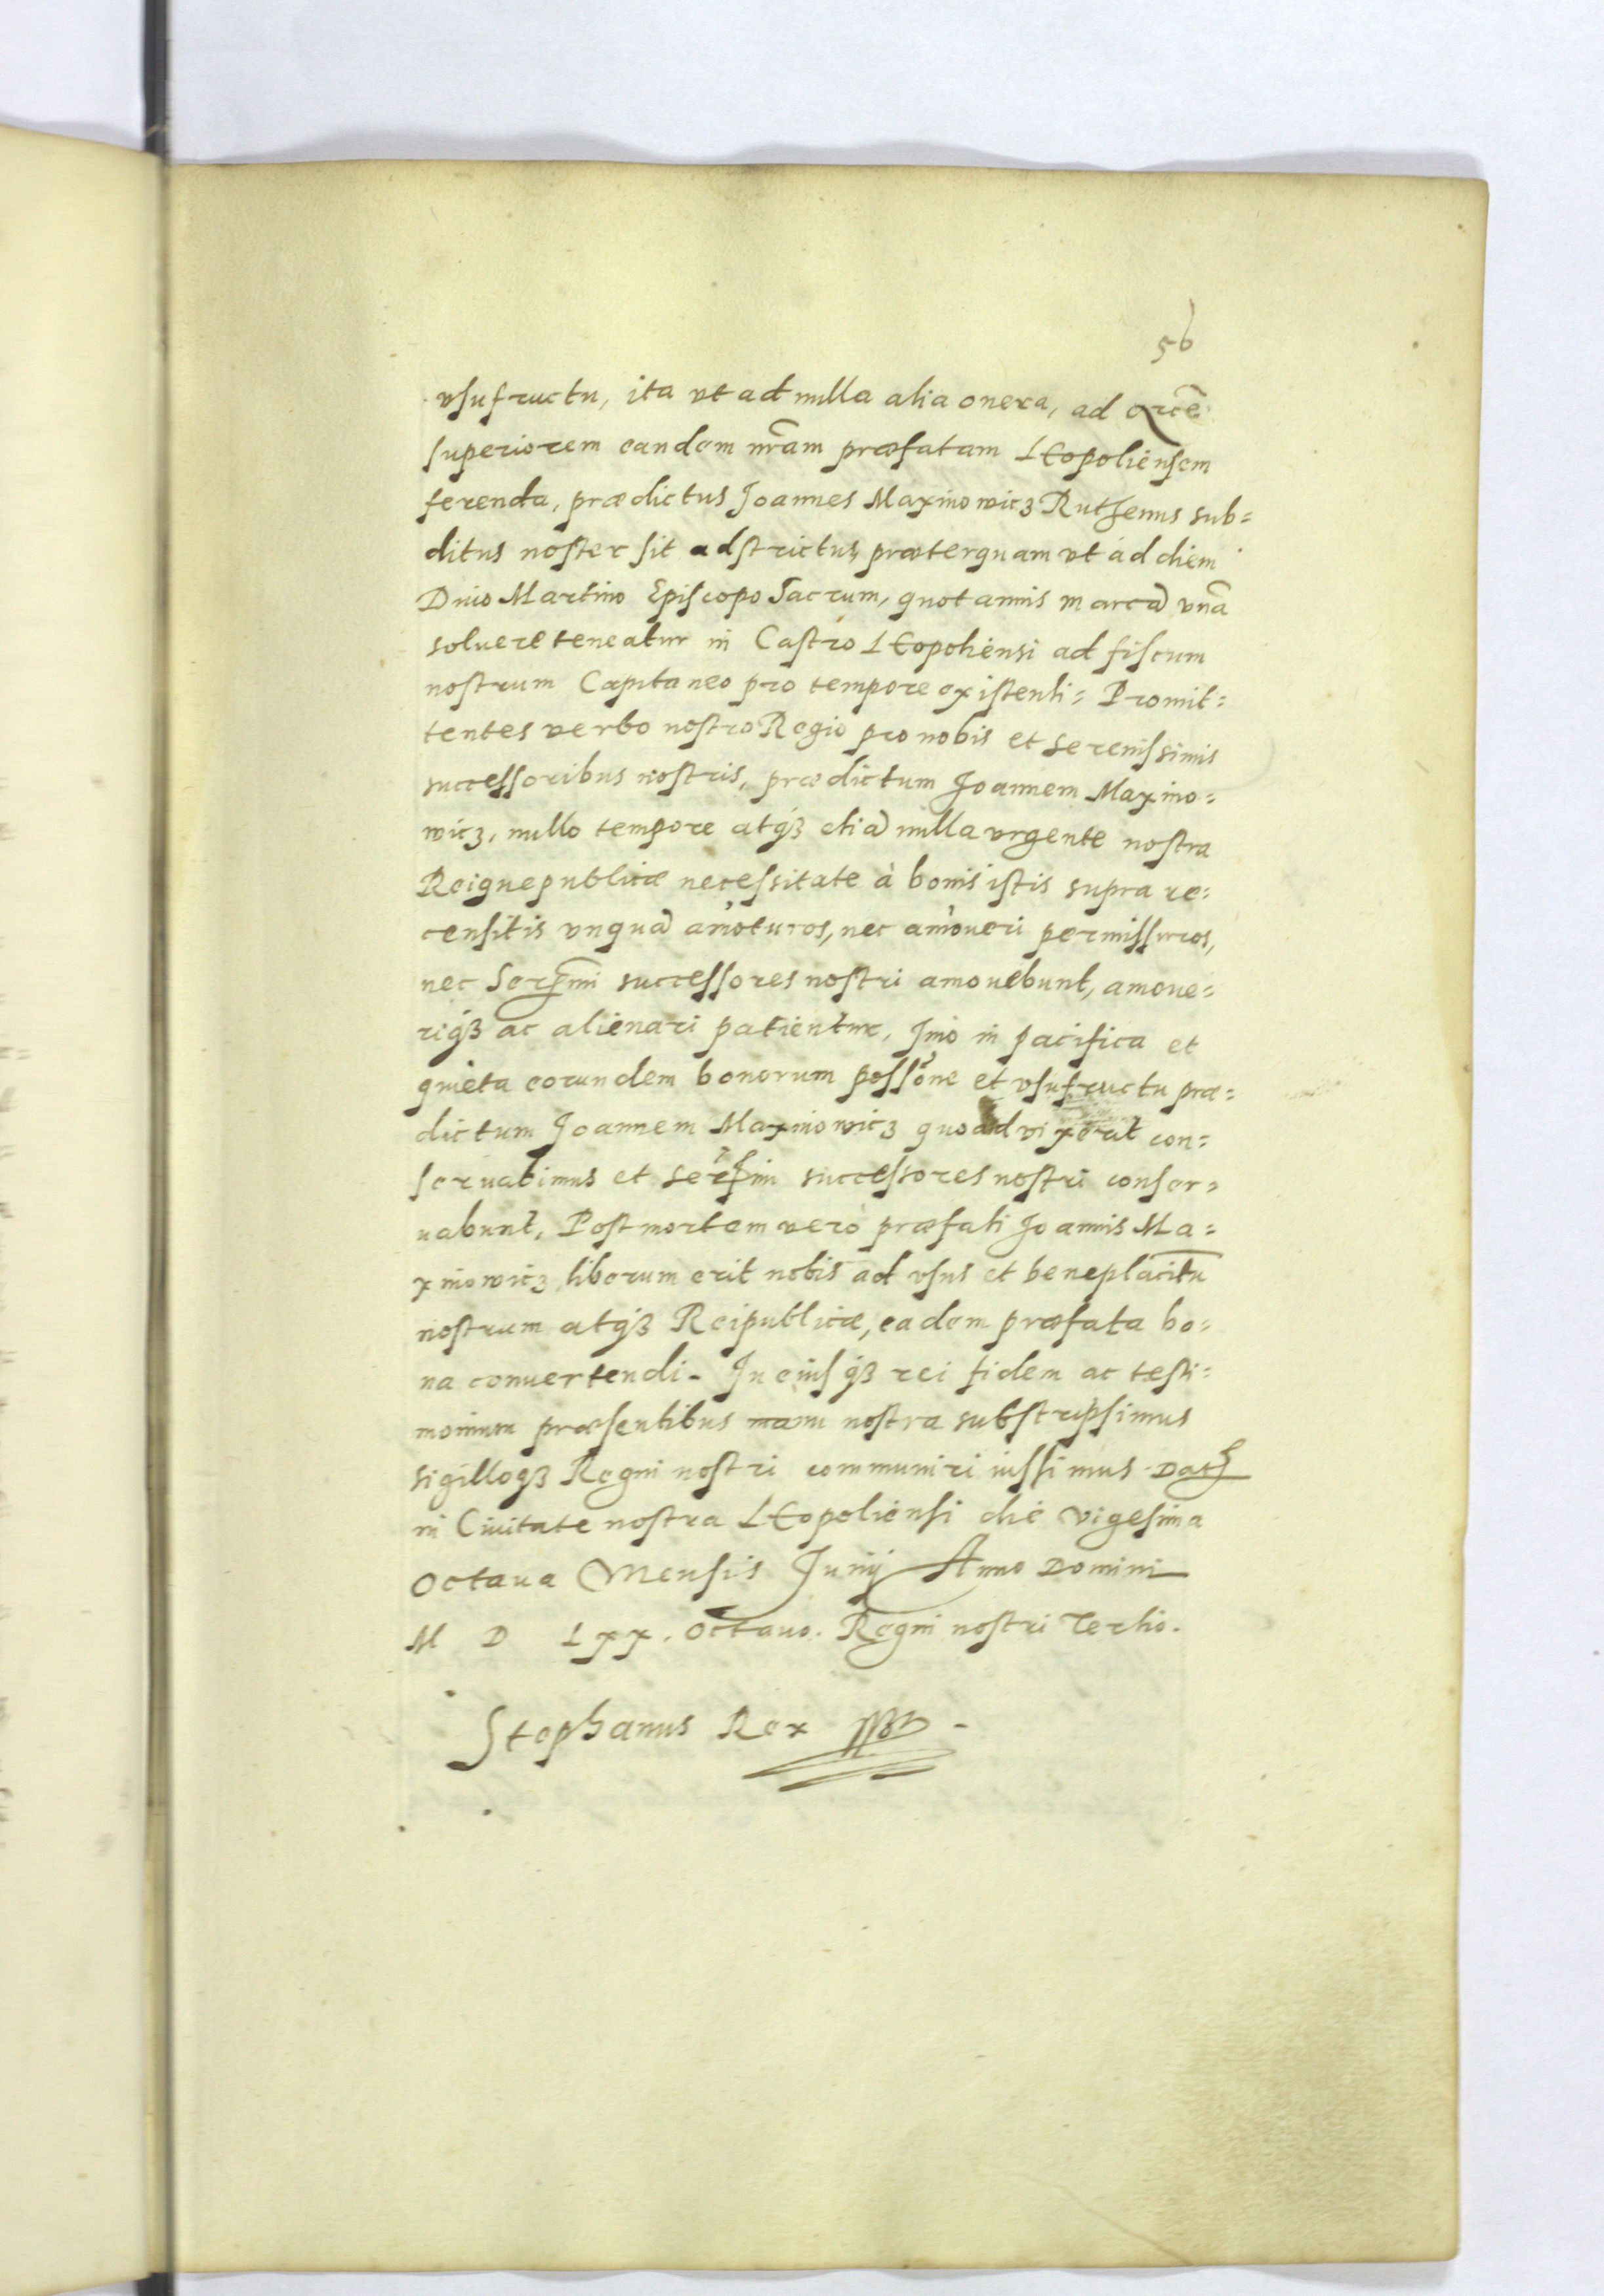 56
vsufructu, ita vt ad nulla alia onera, ad arcē
superiorem eandem nr̄am præfatam LEopoliensem
ferenda, prædictus Joannes Maxinowicz Ruthenus sub=
ditus noster sit adstrictus, præterquam vt ad diem
Diuo Martino Episcopo Sacrum, quotannis marcā vnā
soluere teneatur in Castro LEopoliensi ad fiscum
nostrum Capitaneo pro tempore existenti= Promit=
tentes verbo nostro Regio pro nobis et serenissimis
successoribus nostris, prædictum Joannem Maxino=
wicz, nullo tempore atq3 etiā nulla vrgente nostra
Reiquepublicæ necessitate à bonis istis supra re=
censitis vnquā amoturos, nec amoueri permissuros,
nec Serⁿmi successores nostri amouebunt, amoue=
riq3 ac alienari patientur, Jmò in pacifica et
quieta eorundem bonorum possōne et vsufructu præ=
dictum Joannem Maxinowicz quoad vixerit con=
seruabimus et serⁿmi successores nostri conser=
uabunt, Post mortem verò præfati Joannis Ma=
xinowicz, liberum erit nobis ad vsus et beneplacitū
nostrum atq3 Reipublicæ, eadem præfata bo=
na conuertendi- In eiusq3 rei fidem ac testi=
monium præsentibus manu nostra subscripsimus
sigilloq3 Regni nostri communiri iussimus Dat
in Ciuitate nostra LEopoliensi die vigesima
Octaua Mensis Junij Anno Domini
M D Lxx. Octauo. Regni nostri Tertio.
Stephanus Rex